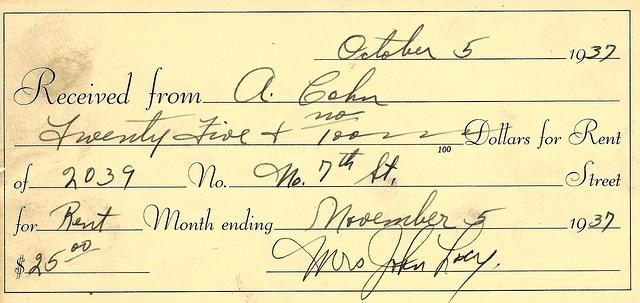 October 5 1937
Received from A. Cohn
Twenty Five & no/100 100 Dollars for Rent
of 2039 No. No. 7th St. Street
for Rent Month ending November 5 1937
$25.00 Mrs John